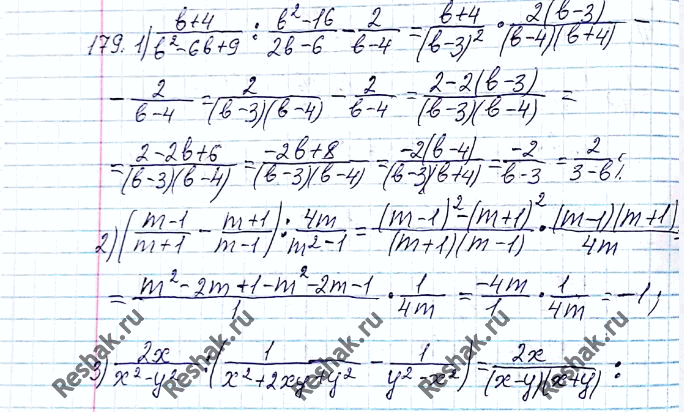 179. 1) (b+4)/(b²-6b+9) : (b²-16)/(2b-6) - 2/(b-4) = (b+4)/(b-3)² · 2(b-3)/((b-4)(b+4)) -
- 2/(b-4) = 2/((b-3)(b-4)) - 2/(b-4) = (2-2(b-3))/((b-3)(b-4)) =
= (2-2b+6)/((b-3)(b-4)) = (-2b+8)/((b-3)(b-4)) = -2(b-4)/((b-3)(b+4)) = -2/(b-3) = 2/(3-b);
2) ((m-1)/(m+1) - (m+1)/(m-1)) : 4m/(m²-1) = ((m-1)²-(m+1)²)/((m+1)(m-1)) · (m-1)(m+1)/4m =
= (m²-2m+1-m²-2m-1)/1 · 1/4m = -4m/1 · 1/4m = -1;
3) 2x/(x²-y²) : (1/(x²+2xy+y²) - 1/(y²-x²)) = 2x/((x-y)(x+y)) :
Reshak.ru Reshak.ru Reshak.ru Reshak.ru